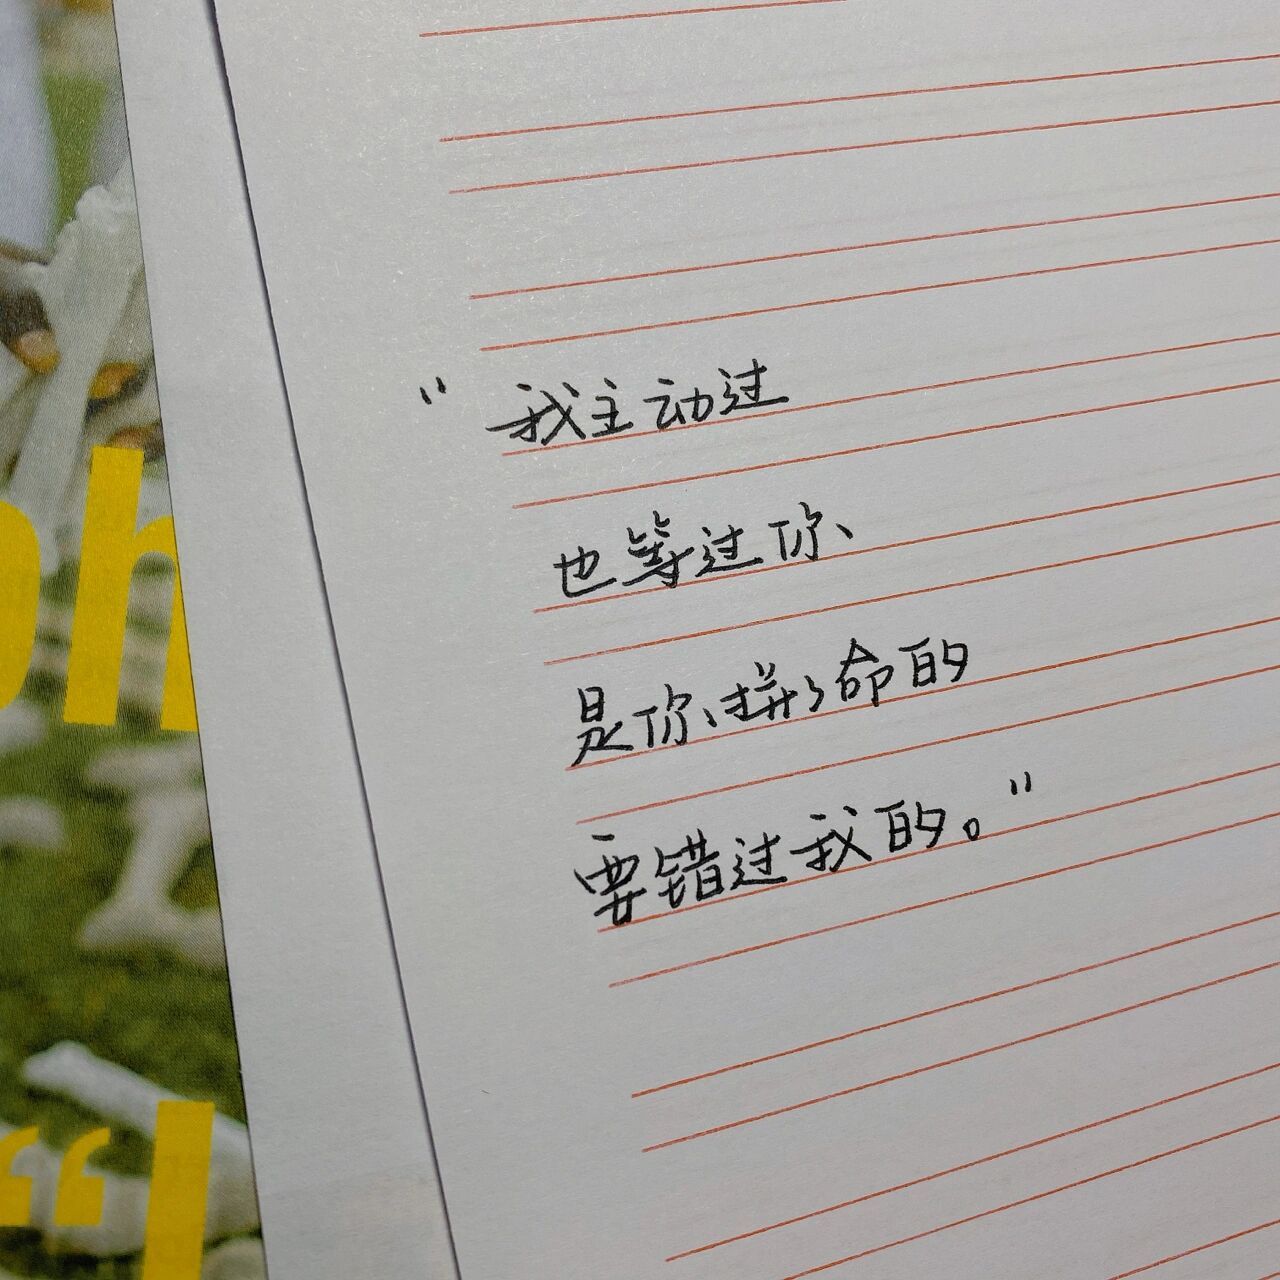 "我主动过
也等过你、
是你、拼了命的
要错过我的。"
oh
"I